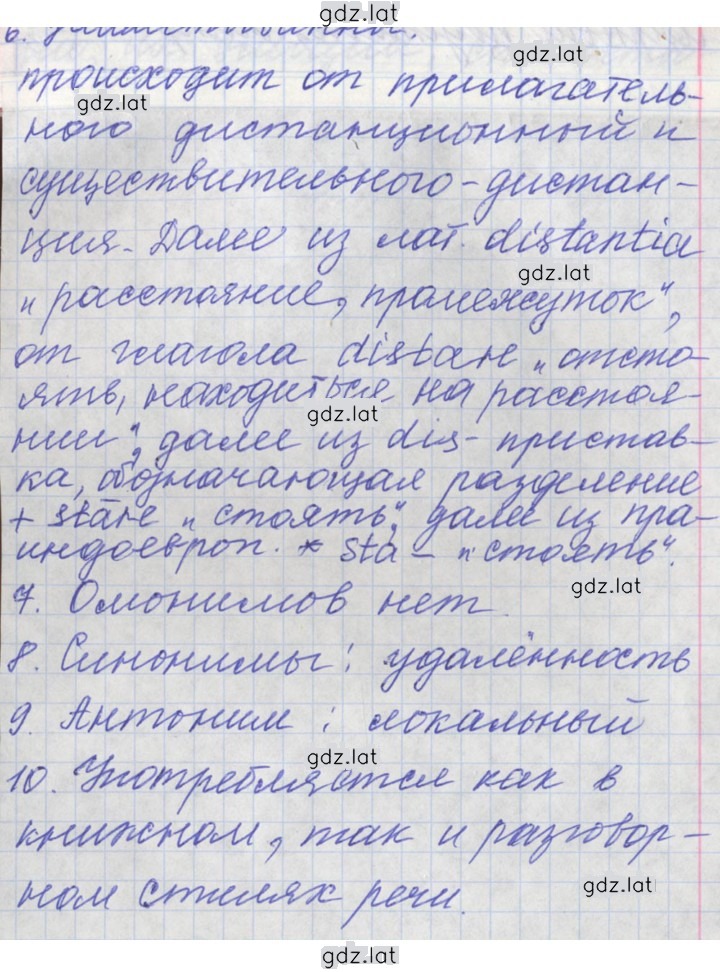 gdz.lat
6. Заимствованный.
gdz.lat
происходит от прилагатель-
gdz.lat
ного дистанционный и
существительного-дистан-
ция. Далее из лат. distantia
gdz.lat
„расстояние, промежуток“,
от глагола distare „отсто-
ять, находиться на расстоя-
gdz.lat
нии“, далее из dis- пристав-
ка, обозначающая разделение
+ stāre „стоять“, далее из пра-
индоевроп. *sta- „стоять“.
gdz.lat
7. Омонимов нет.
8. Синонимы: удалённость
9. Антоним: локальный
gdz.lat
10. Употребляется как в
книжном, так и разговор-
gdz.lat
ном стилях речи.
gdz.lat